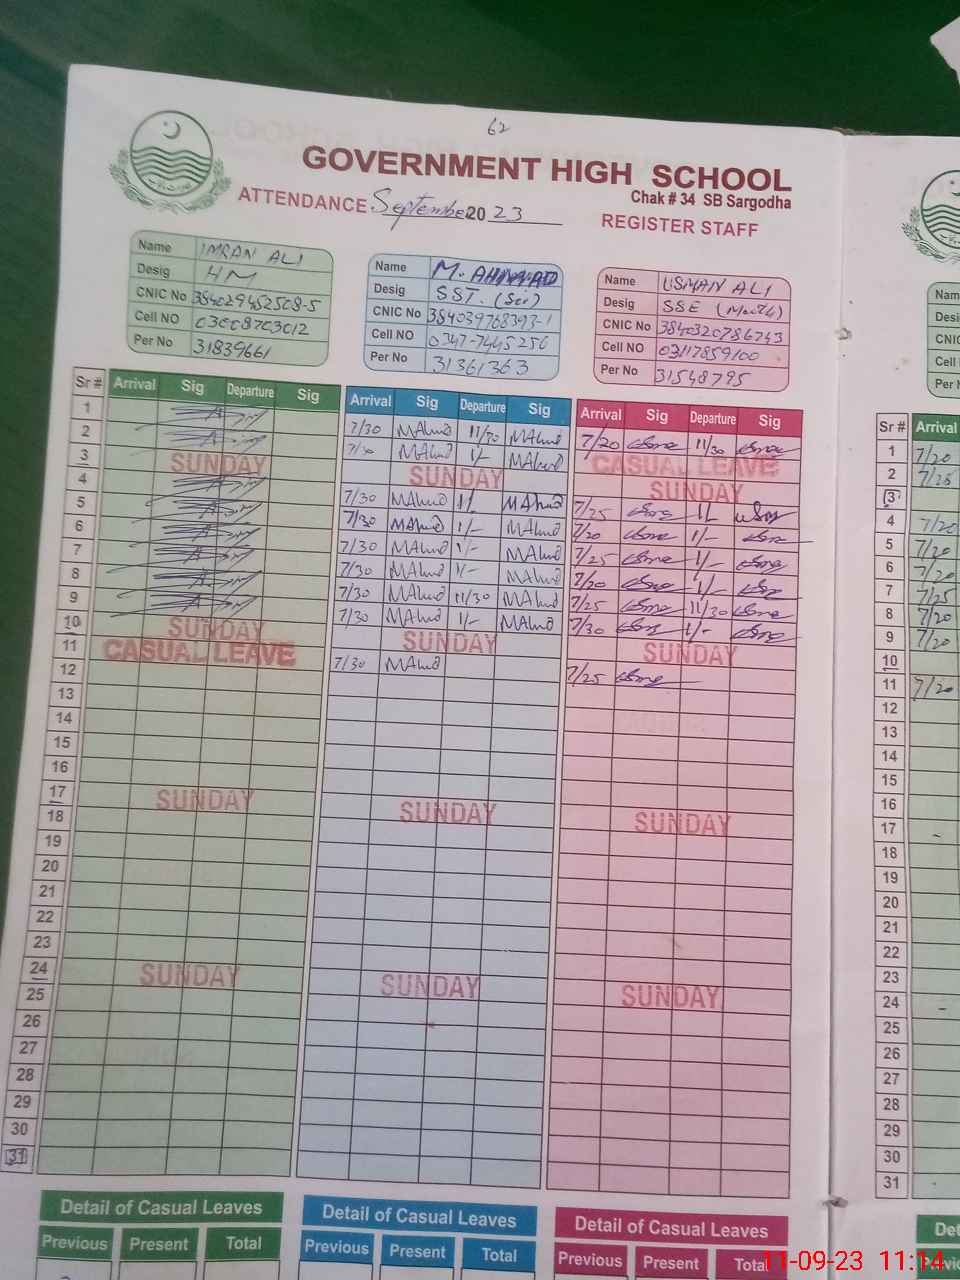 62
GOVERNMENT HIGH SCHOOL
Chak # 34 SB Sargodha
ATTENDANCE September 2023 REGISTER STAFF
Name IMRAN ALI
Desig HM
CNIC No 384029452508-5
Cell NO 03008703012
Per No 31839661
Name M. AHMAD
Desig SST. (Sci)
CNIC No 384039768393-1
Cell NO 0347-7445256
Per No 31361363
Name USMAN ALI
Desig SSE (Math)
CNIC No 3840320786743
Cell NO 03117859100
Per No 31548795
Sr # Arrival Sig Departure Sig Arrival Sig Departure Sig Arrival Sig Departure Sig Sr # Arrival
1 7/30 MAhmd 11/30 MAhmd 7/20 11/30 1 7/20
2 7/30 MAhmd 1/- MAhmd CASUAL LEAVE 2 7/25
3 SUNDAY SUNDAY SUNDAY 3
4 7/30 MAhmd 1/- MAhmd 7/25 1/- 4 7/20
5 7/30 MAhmd 1/- MAhmd 7/20 1/- 5 7/20
6 7/30 MAhmd 1/- MAhmd 7/25 1/- 6 7/20
7 7/30 MAhmd 1/- MAhmd 7/20 1/- 7 7/25
8 7/30 MAhmd 11/30 MAhmd 7/25 11/30 8 7/20
9 7/30 MAhmd 1/- MAhmd 7/30 1/- 9 7/20
10 SUNDAY SUNDAY SUNDAY 10
11 CASUAL LEAVE 7/30 MAhmd 7/25 11 7/20
12 12
13 13
14 14
15 15
16 16
17 SUNDAY SUNDAY SUNDAY 17
18 18
19 19
20 20
21 21
22 22
23 23
24 SUNDAY SUNDAY SUNDAY 24
25 25
26 26
27 27
28 28
29 29
30 30
31 31
Detail of Casual Leaves Detail of Casual Leaves Detail of Casual Leaves
Previous Present Total Previous Present Total Previous Present Total
11-09-23 11:14